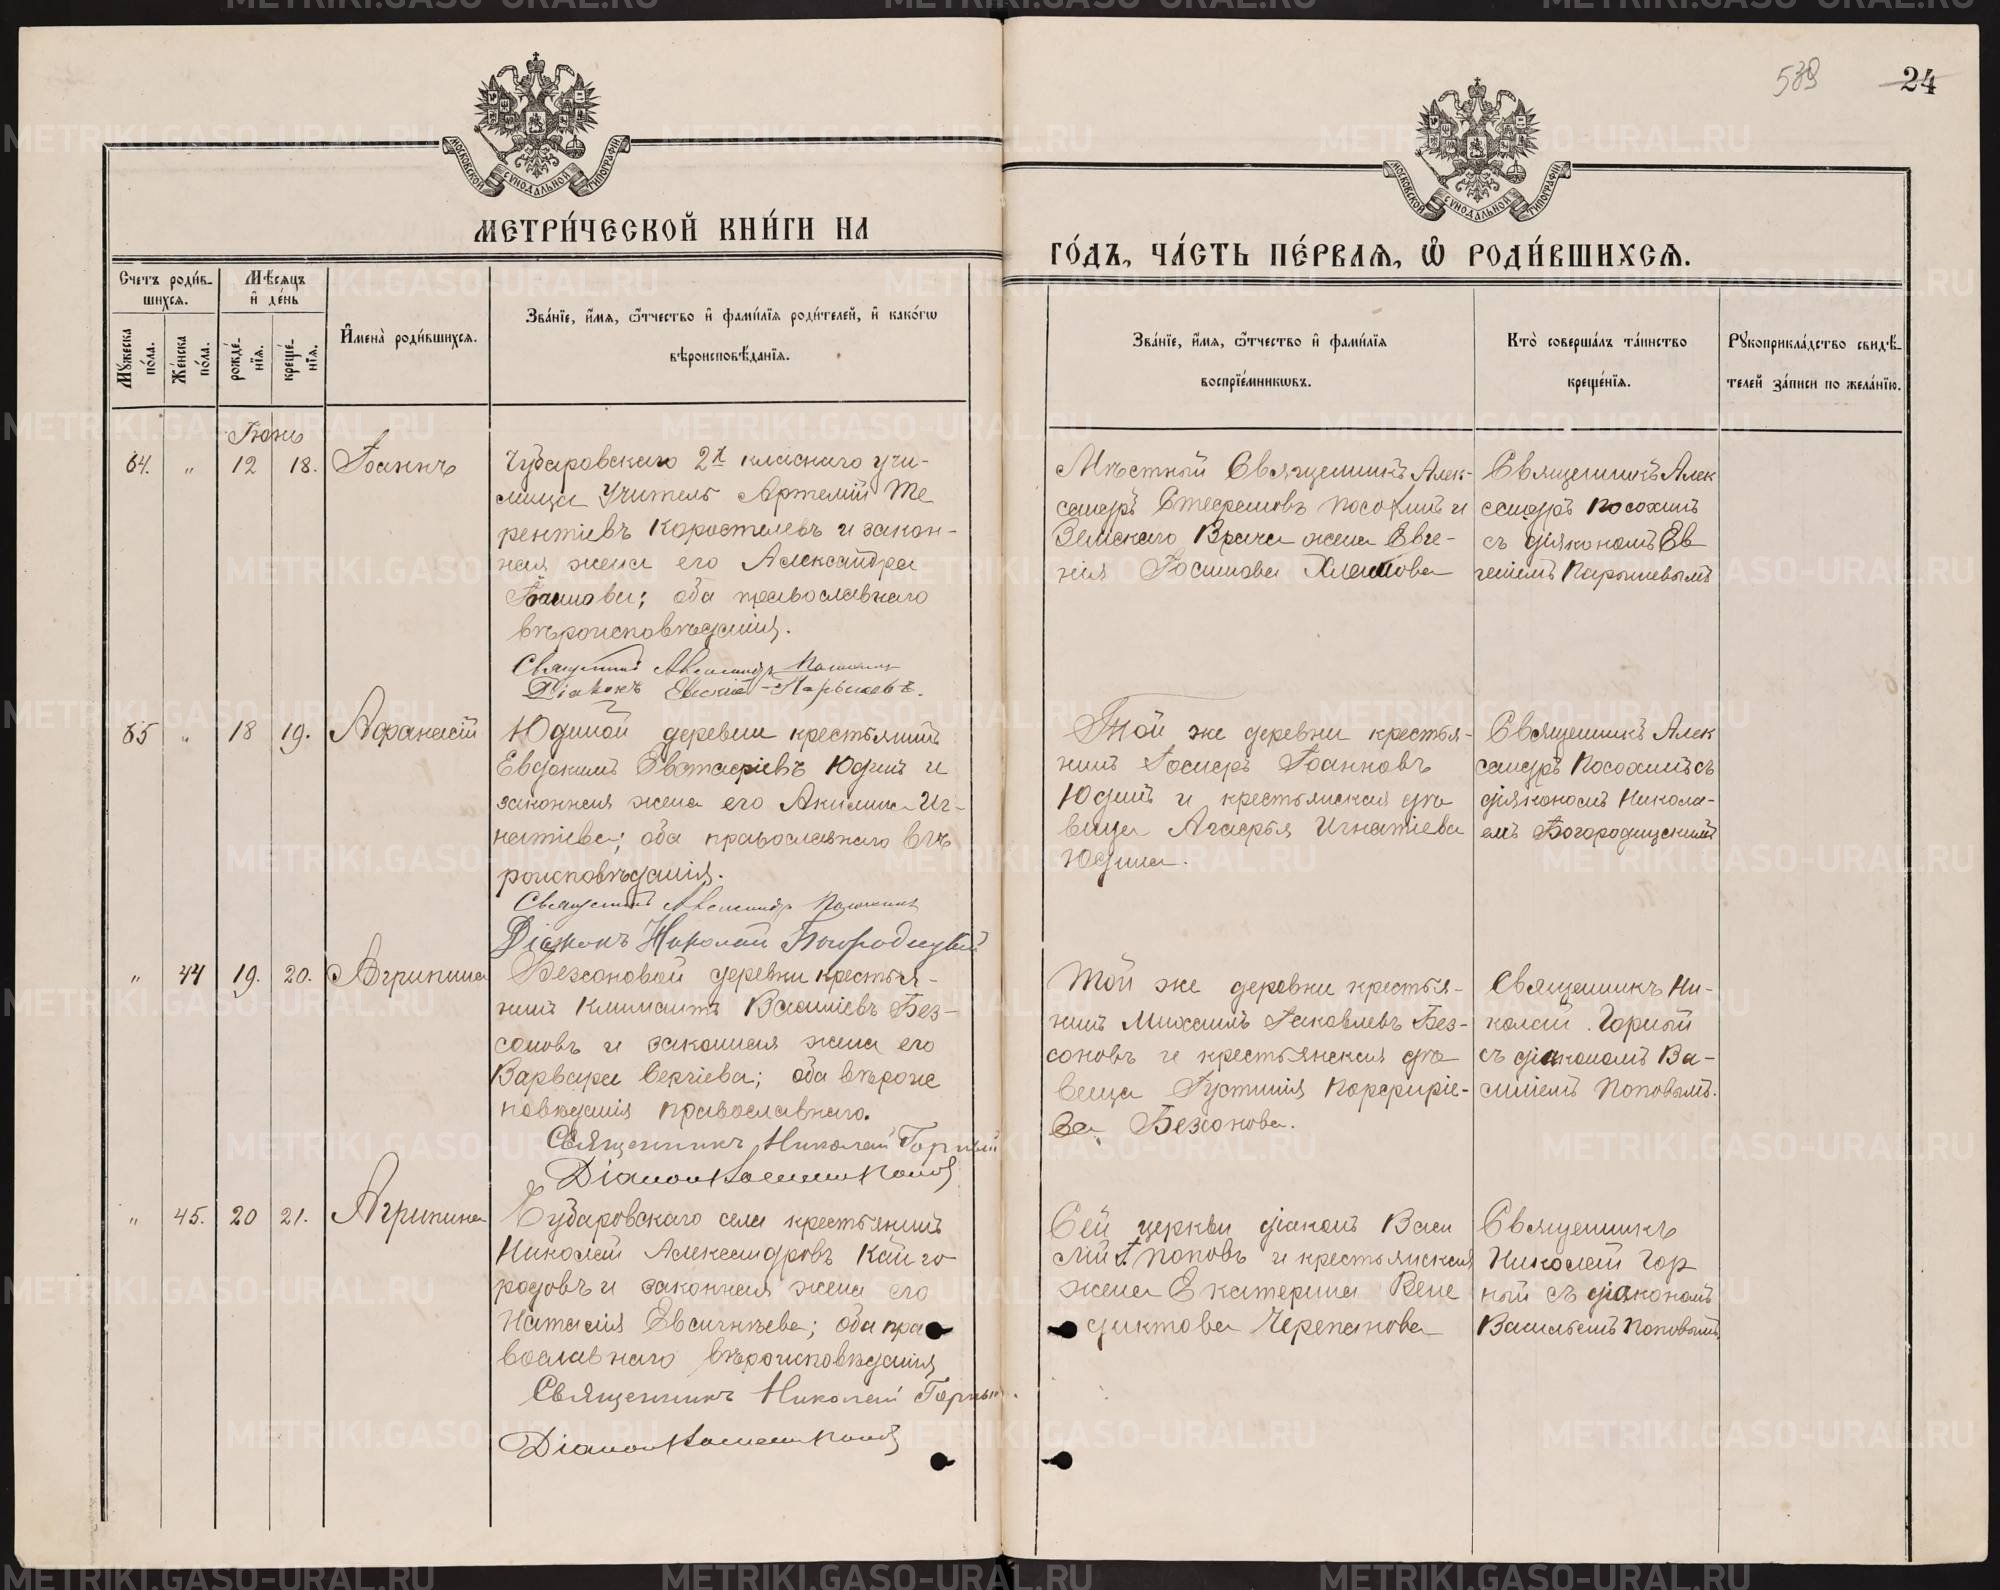 539 24
МОСКОВСКОЙ СѴНОДАЛЬНОЙ ТИПОГРАФІИ
МОСКОВСКОЙ СѴНОДАЛЬНОЙ ТИПОГРАФІИ
МЕТРИ́ЧЕСКОЙ КНИ́ГИ НА
ГО́ДЪ, ЧА́СТЬ ПЕ́РВАЯ, Ѡ РОДИ́ВШИХСЯ.
Счетъ роди́в-
шихся.
Мѣсяцъ
и де́нь
Мужеска по́ла.
Же́нска по́ла.
рожде́нїя.
креще́нїя.
Имена̀ роди́вшихся.
Зва́нїе, и́мя, ѻ́тчество и фами́лїя роди́телей, и како́гѡ
вѣроисповѣ́данїя.
Зва́нїе, и́мя, ѻ́тчество и фами́лїя
воспрїе́мниковъ.
Кто̀ соверша́лъ та́инство
креще́нїя.
Рукоприкла́дство свидѣ́-
телей за́писи по жела́нїю.
Іюнь
64. „ 12 18. Іоаннъ
Чубаровскаго 2х класнаго учи-
лища Учитель Артемій Те
рентіевъ Коростелевъ и закон-
ная жена его Александра
Іоаннова; оба православнаго
вѣроисповѣданія.
Священникъ Александръ Посохинъ
Діаконъ Евгеній Парышевъ.
Мѣстный Священникъ Алек-
сандръ Стефановъ Посохинъ и
Земскаго Врача жена Евге-
нія Іоаннова
Священникъ Алек
сандръ Посохинъ
съ діакономъ Ев
геніемъ Парышевымъ
65 „ 18 19. Афанасій
Юдиной деревни крестьянинъ
Евдокимъ Евстафіевъ Юдинъ и
законная жена его Акилина Иг-
натіева; оба православнаго вѣ
роисповѣданія.
Священникъ Александръ Посохинъ
Діаконъ Николай Богородицкій
Той же деревни крестья-
нинъ Іоаннъ Іоанновъ
Юдинъ и крестьянская дѣ
вица Агафья Игнатіева
Юдина.
Священникъ Алек
сандръ Посохинъ съ
діакономъ Никола-
емъ Богородицкимъ
„ 44 19. 20. Агрипина
Безсоновой деревни крестья-
нинъ Климентъ Василіевъ Без-
соновъ и законная жена его
Варвара Сергіева; оба вѣроис
повѣданія православнаго.
Священникъ Николай Горный
Діаконъ Василій Поповъ
Той же деревни крестья-
нинъ Михаилъ Іаковлевъ Без-
соновъ и крестьянская дѣ
вица Іустинія Порфиріе-
ва Безсонова.
Священникъ Ни-
колай Горный
съ діакономъ Ва-
силіемъ Поповымъ.
„ 45. 20 21. Агрипина
Чубаровскаго села крестьянинъ
Николай Александровъ Кайго
родовъ и законная жена его
Наталія Евсигнѣева; оба пра
вославнаго вѣроисповѣданія
Священникъ Николай Горный.
Діаконъ Василій Поповъ
Сей церкви діаконъ Васи
лій І. Поповъ и крестьянская
жена Екатерина Вене
диктова Черепанова
Священникъ
Николай Гор
ный съ діакономъ
Васильемъ Поповымъ
METRIKI.GASO-URAL.RU